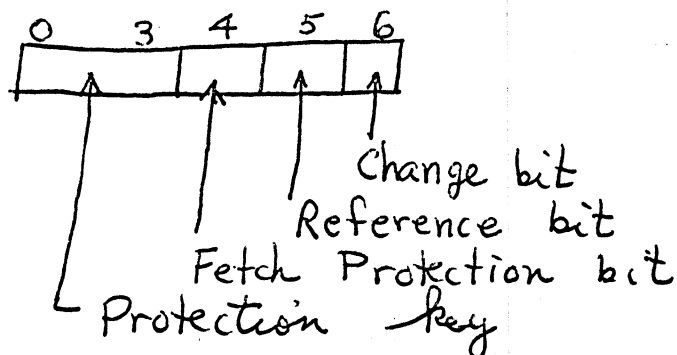 0 3 4 5 6
Change bit
Reference bit
Fetch Protection bit
Protection key